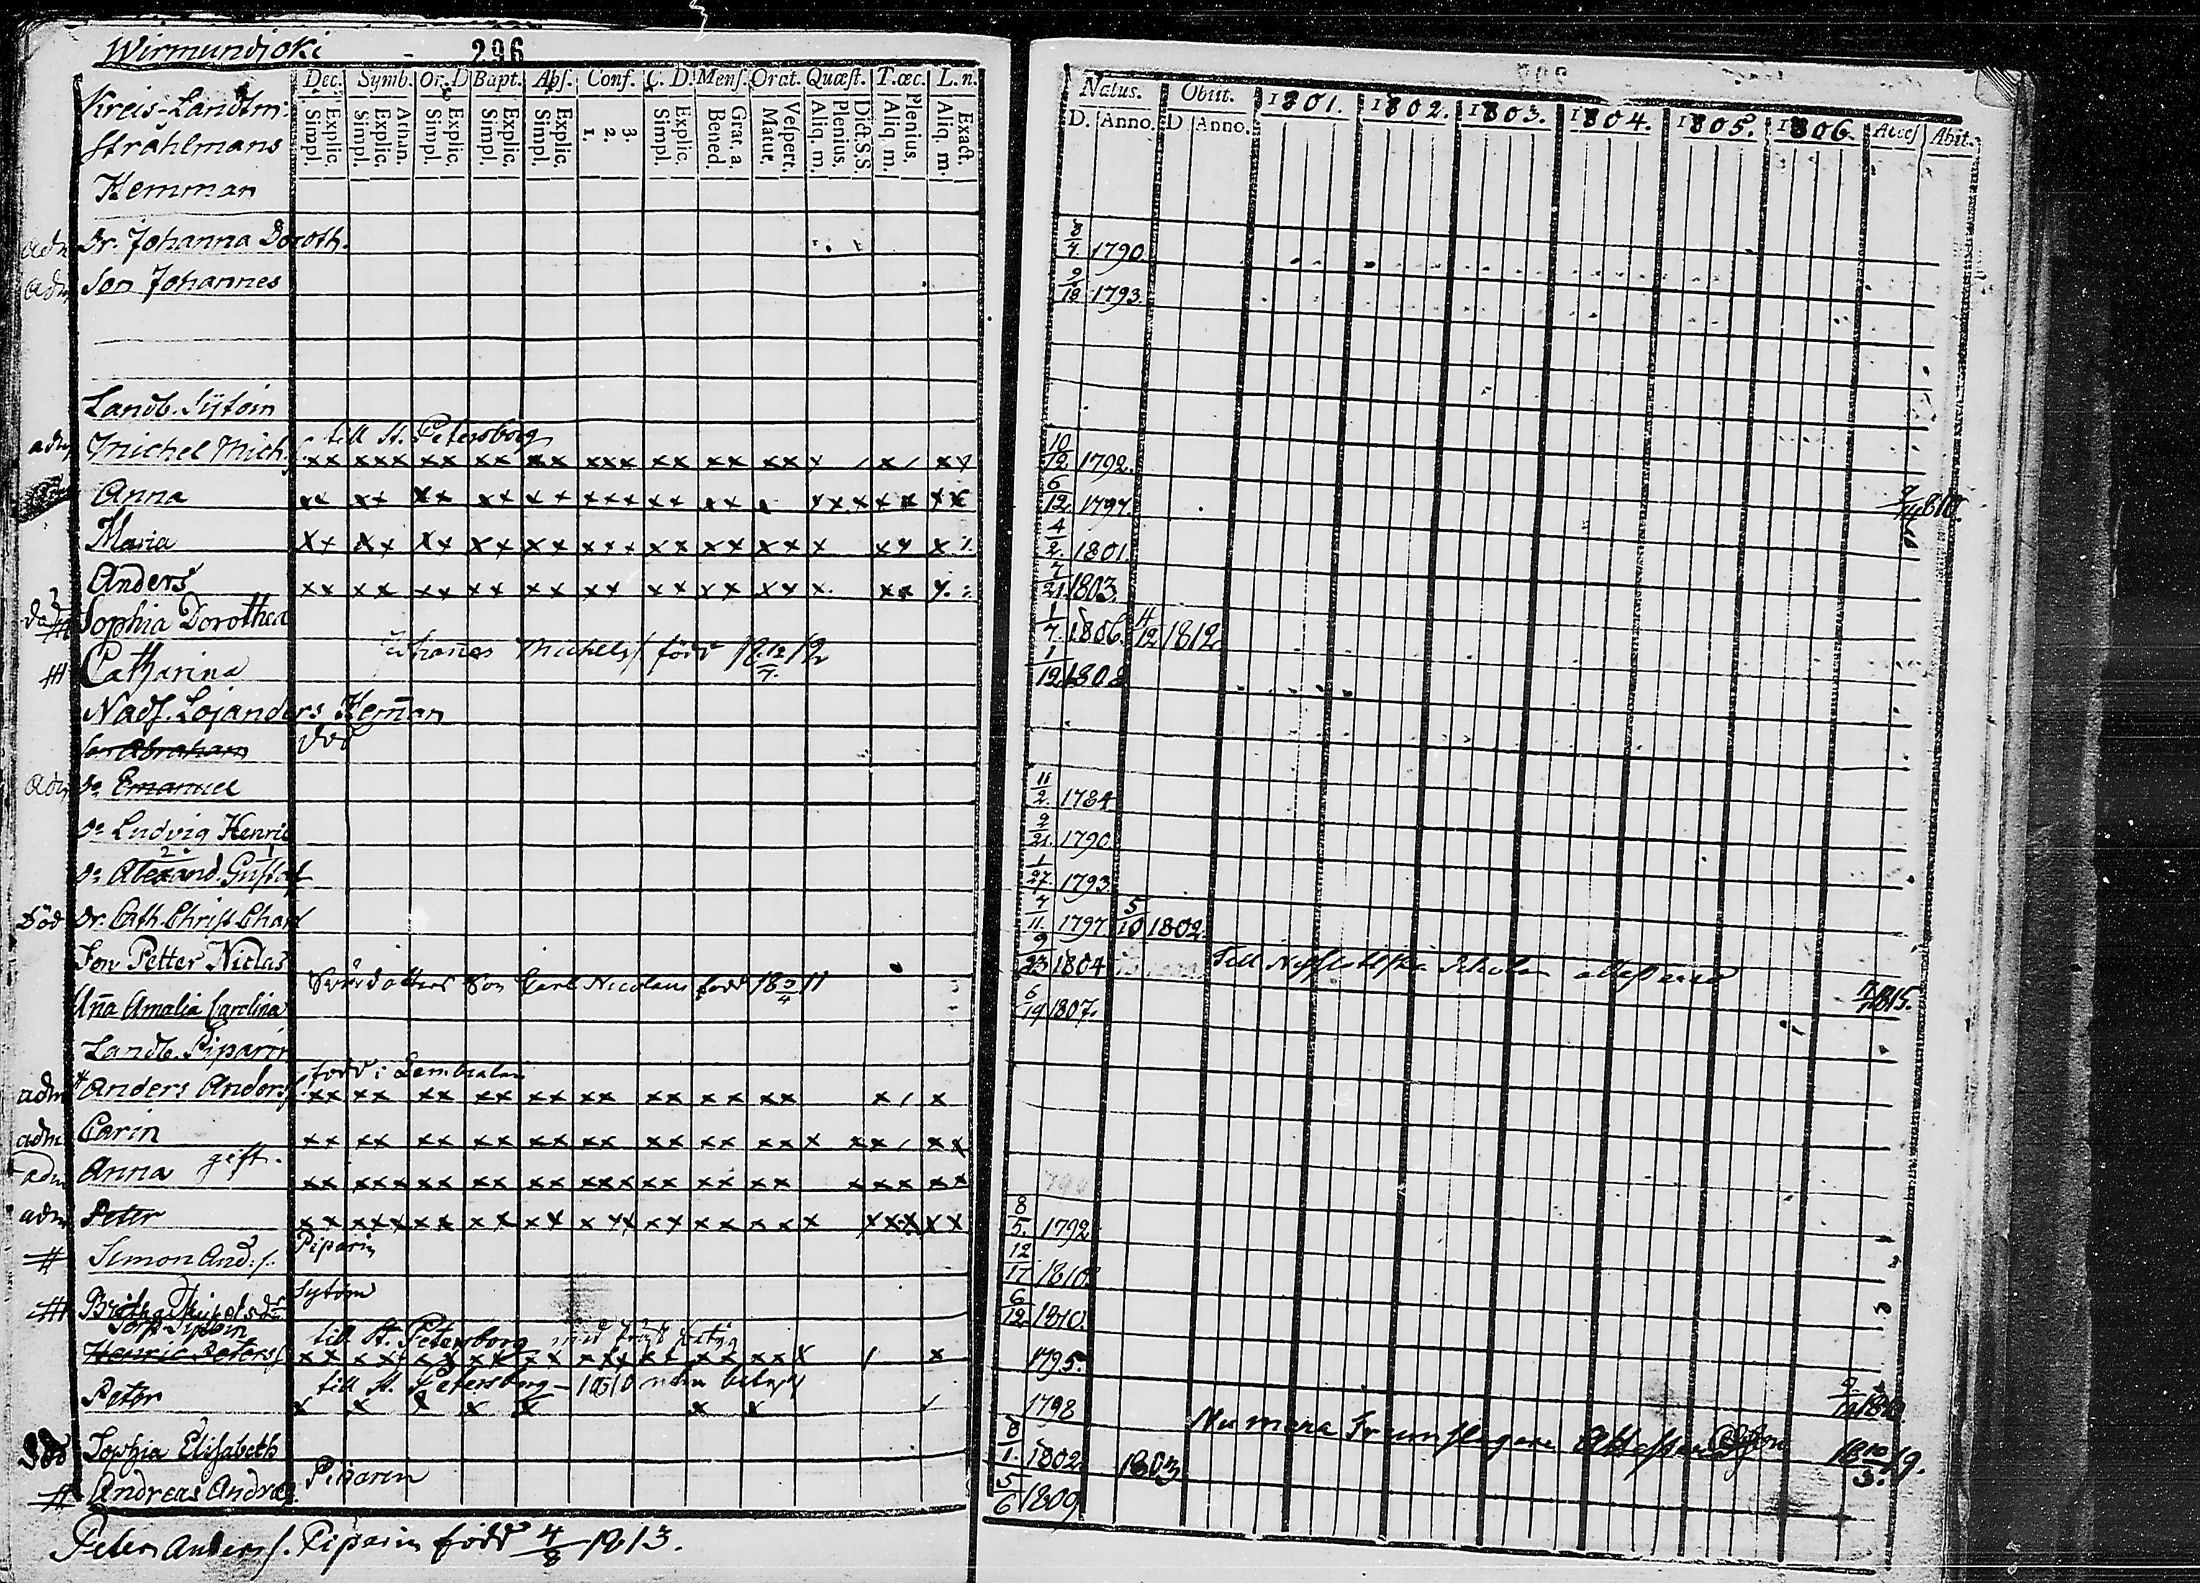 Wirmundjoki - 296
Dec. Symb. Or. D Bapt. Abs. Conf. C. D. Mens. Orat. Quæst. T. œc. L. n.
Simpl. Explic. Simpl. Explic. Athan. Simpl. Explic. Simpl. Explic. Simpl. Explic. 1. 2. 3. Simpl. Explic. Bened. Grat. a. Matut. Vespert. Aliq. m. Plenius. Dict. S.S. Aliq. m. Plenius. Aliq. m. Exact.
Natus. Obiit. 1801. 1802. 1803. 1804. 1805. 1806. Acces Abit.
D. Anno. D Anno.
Kreis-Landtm:
Stråhlmans
Hemman
adm Dr. Johanna Doroth. 8/4. 1790
adm Son Johannes 9/18 1793.
Landb. Sÿtoin
adm Michel Mich. s. till St. Petersborg 10/12 1792.
Anna 6/12 1797.
Maria 4/2. 1801.
Anders 7/21 1803.
död Sophia Dorothea 1/7. 1806. 4/12 1812
Johanes Michels. född 18 12/7. 12
Catharina 1/12 1808
Nads. Lojanders Heman
Son Abraham död
adm Do Emanuel 11/2. 1784
Do Ludvig Henric 9/21. 1790
Do Alexand. Gustaf 1/27. 1793.
Död Dr. Cath. Christ. Charl 7/11. 1797 5/10 1802.
Son Petter Niclas 9/23 1804 Till Nyslottska Scholan
Son Carl Nicolaus född 18 9/4 11
Aña Amalia Carolina 6/19 1807. 1815.
Landb. Piparin
adm Anders Anders s. född i Lembala
adm Carin
adm Anna gift.
adm Peter 8/5. 1792
Simon And. s. Piparin 12/17 1810.
Britha Michelsdr Sytoin 6/12 1810.
Torp Sytoin
Henric Peters s. till St. Petersborg 1795.
Peter till St. Petersborg - 1810 utan betyg 1798
Död Sophia Elisabeth 8/1. 1802 1803
Numera Trumslagare 18 10/3. 19.
Andreas Andræ Piparin 5/6 1809
Peter Anders s. Piparin född 4/8 1813.